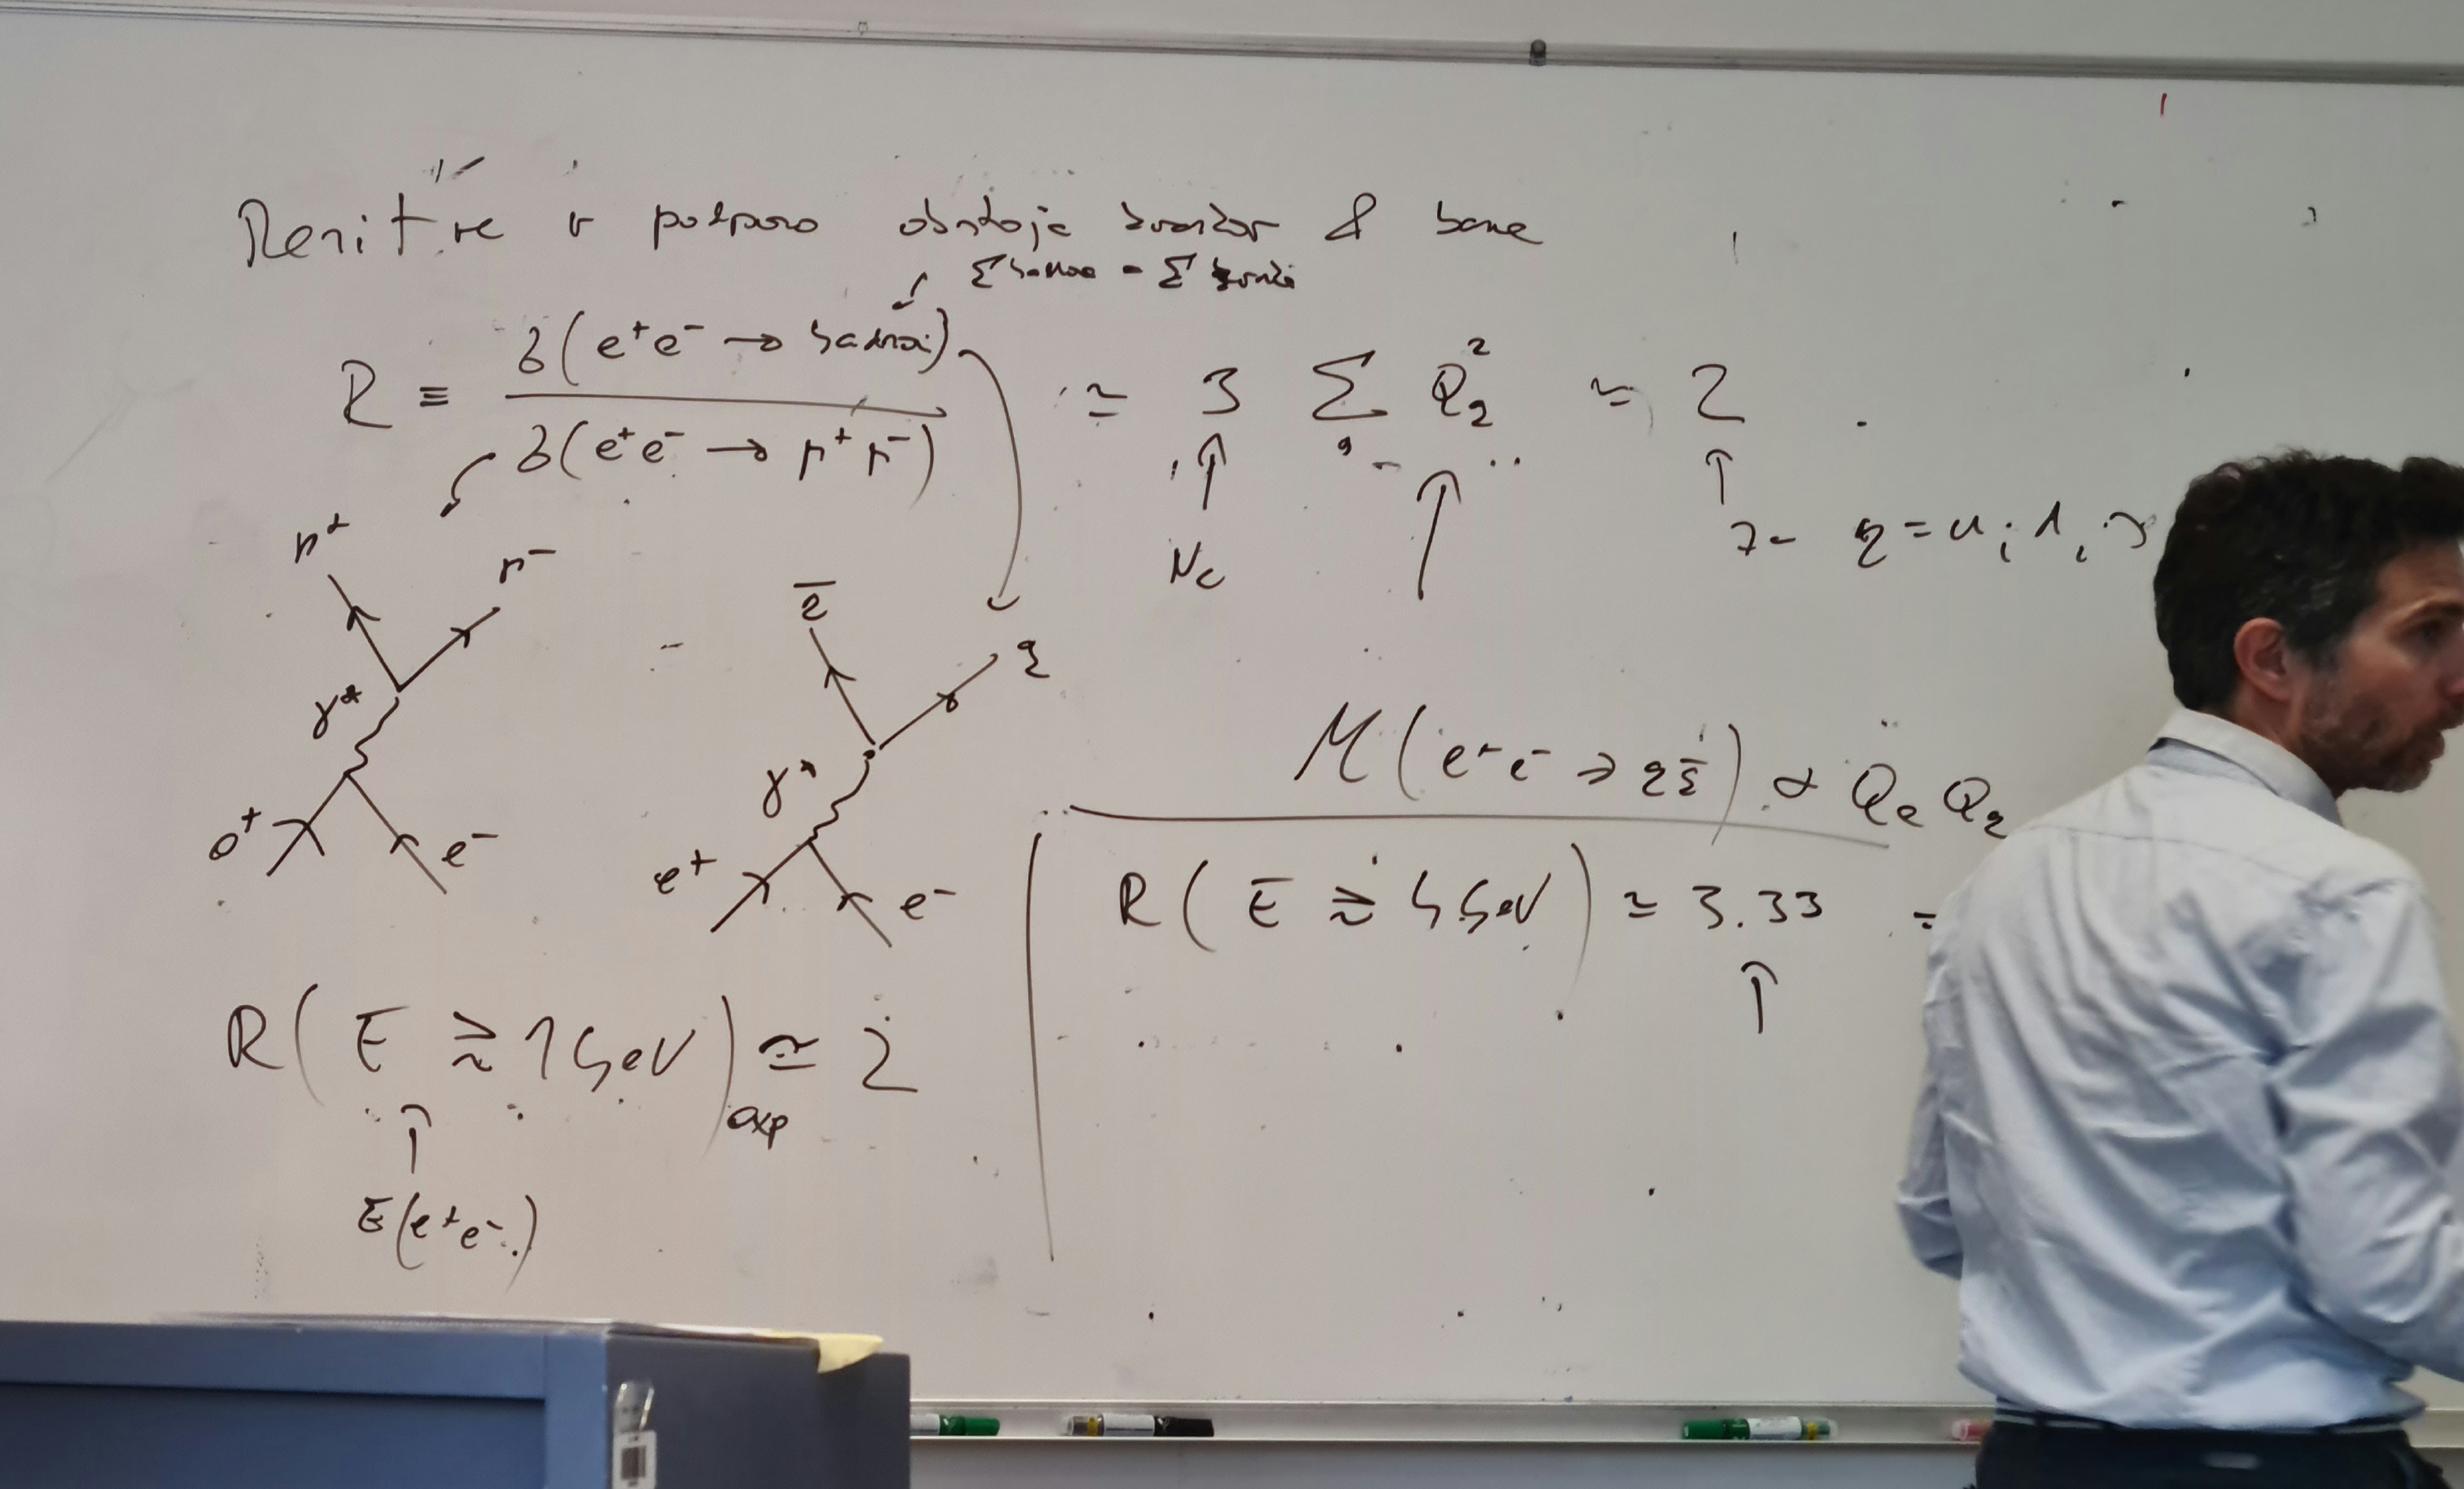 Meritve v podporo obstoja kvarkov & barve
Σ barvne - Σ kvarki
R ≡ σ(e⁺e⁻ → hadroni) / σ(e⁺e⁻ → μ⁺μ⁻) ≃ 3 Σ_q Q_q² ≃ 2
↑ N_c
↑ za q = u, d, s
μ⁺ μ⁻
γ*
e⁺ e⁻
q̄ q
γ*
e⁺ e⁻
M(e⁺e⁻ → qq̄) ∝ Q_e Q_q
R(E ≳ 4 GeV) ≃ 3.33 =
R(E ≳ 1 GeV)_exp ≃ 2
↑
E(e⁺e⁻)